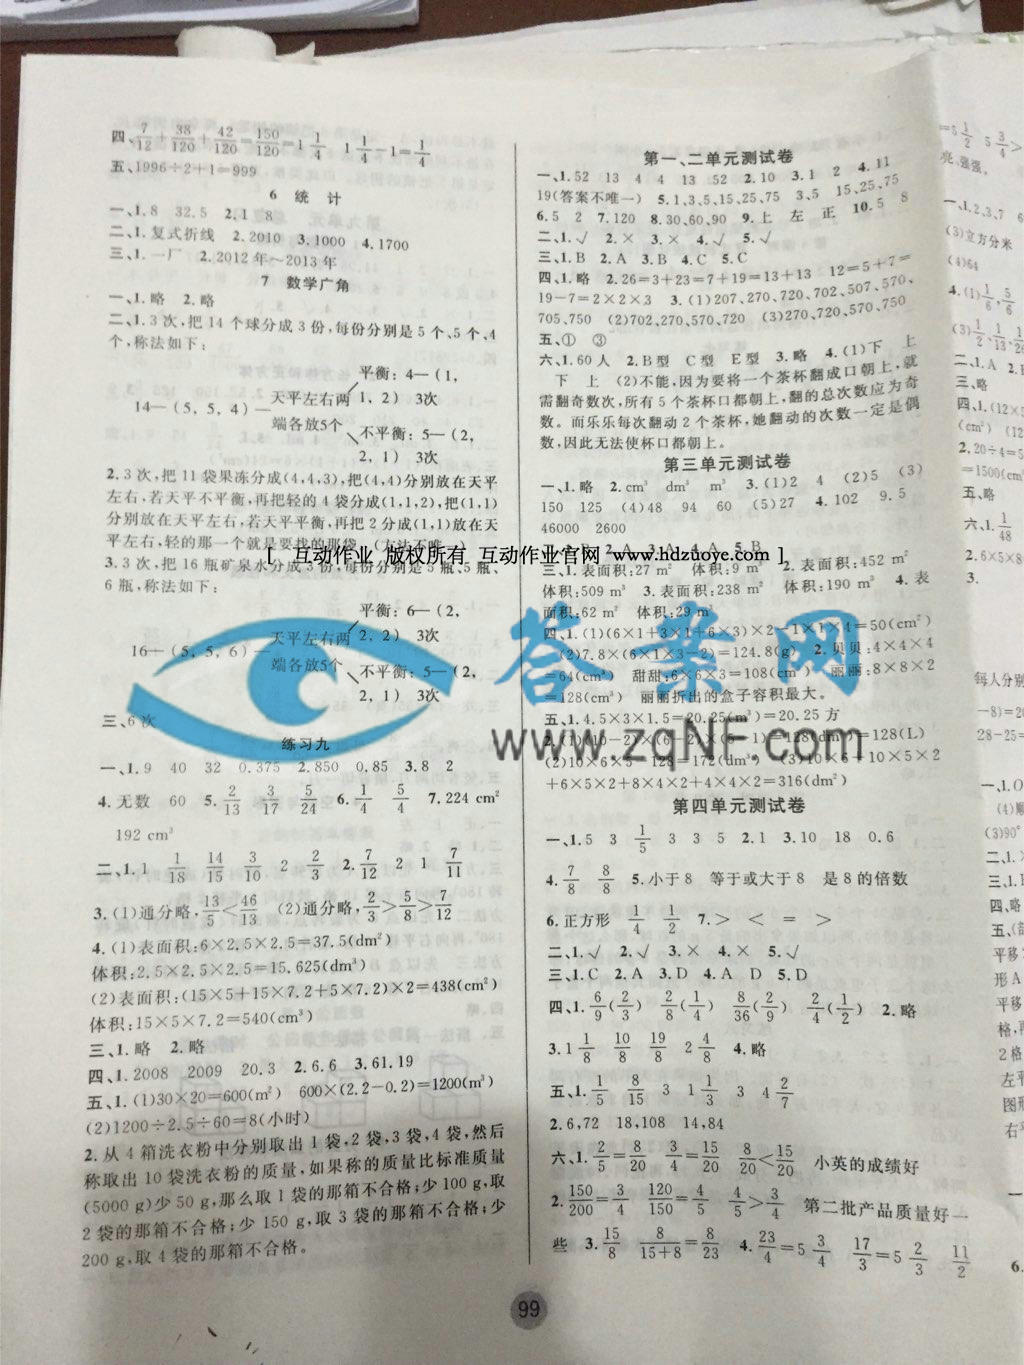 四、7/12+38/120+42/120=150/120=1 1/4 1 1/4-1=1/4
五、1996÷2+1=999
6 统 计
一、1.8 32.5 2.1 8
二、1.复式折线 2.2010 3.1000 4.1700
三、1.一厂 2.2012年~2013年
7 数学广角
一、1.略 2.略
二、1.3次,把14个球分成3份,每份分别是5个、5个、4
个,称法如下:
平衡:4—(1,
14—(5,5,4)—天平左右两 1,2) 3次
端各放5个 不平衡:5—(2,
2,1) 3次
2.3次,把11袋果冻分成(4,4,3),把(4,4)分别放在天平
左右,若天平不平衡,再把轻的4袋分成(1,1,2),把(1,1)
分别放在天平左右,若天平平衡,再把2分成(1,1)放在天
平左右,轻的那一个就是要找的那袋。(方法不唯一)
3.3次,把16瓶矿泉水分成3份,每份分别是5瓶、5瓶、
6瓶,称法如下:
平衡:6—(2,
16—(5,5,6)—天平左右两 2,2) 3次
端各放5个 不平衡:5—(2,
2,1) 3次
三、6次
练习九
一、1.9 40 32 0.375 2.850 0.85 3.8 2
4.无数 60 5.2/13 3/17 5/24 6.1/4 5/4 7.224 cm²
192 cm³
二、1.1 1/18 14/15 3/10 2 2/3 2.7/12 2 1 7/11
3.(1)通分略,13/5<46/13 (2)通分略,2/3>5/8>7/12
4.(1)表面积:6×2.5×2.5=37.5(dm²)
体积:2.5×2.5×2.5=15.625(dm³)
(2)表面积:(15×5+15×7.2+5×7.2)×2=438(cm²)
体积:15×5×7.2=540(cm³)
三、1.略 2.略
四、1.2008 2009 20.3 2.6.6 3.61.19
五、1.(1)30×20=600(m²) 600×(2.2-0.2)=1200(m³)
(2)1200÷2.5÷60=8(小时)
2.从4箱洗衣粉中分别取出1袋,2袋,3袋,4袋,然后
称取出10袋洗衣粉的质量,如果称的质量比标准质量
(5000 g)少50 g,那么取1袋的那箱不合格;少100 g,取
2袋的那箱不合格;少150 g,取3袋的那箱不合格;少
200 g,取4袋的那箱不合格。
第一、二单元测试卷
一、1.52 13 4 4 13 52 2.10 3.1 2 4.11
19(答案不唯一) 5.1,3,5,15,25,75 3,5 15,25,75
6.5 2 7.120 8.30,60,90 9.上 左 正 10.5 8
二、1.√ 2.× 3.× 4.√ 5.√
三、1.B 2.A 3.B 4.C 5.C
四、1.略 2.26=3+23=7+19=13+13 12=5+7=
19-7=2×2×3 3.(1)207,270,720,702,507,570,
705,750 (2)702,270,570,720 (3)270,720,570,750
五、① ③
六、1.60人 2.B型 C型 E型 3.略 4.(1)下 上
下 上 (2)不能,因为要将一个茶杯翻成口朝上,就
需翻奇数次,所有5个茶杯口都朝上,翻的总次数应为奇
数。而乐乐每次翻动2个茶杯,她翻动的次数一定是偶
数,因此无法使杯口都朝上。
第三单元测试卷
一、1.略 2.cm³ dm³ m³ 3.(1)2 4 (2)5 (3)
150 125 (4)48 94 60 (5)27 4.102 9.5
46000 2600
[ 互动作业 版权所有 互动作业官网 www.hdzuoye.com ]
三、1.表面积:27 m² 体积:9 m³ 2.表面积:452 m²
体积:509 m³ 3.表面积:238 m² 体积:190 m³ 4.表
面积:62 m² 体积:29 m³
四、1.(1)(6×1+3×1+6×3)×2-1×1×4=50(cm²)
(2)7.8×(6×1×3-2)=124.8(g) 2.贝贝:4×4×4
=64(cm³) 甜甜:6×6×3=108(cm³) 丽丽:8×8×2
=128(cm³) 丽丽折出的盒子容积最大。
五、1.4.5×3×1.5=20.25(m³)=20.25方
2.(1)(10-2)×(6-2)×(5-1)=128(dm³)=128(L)
(2)10×6×5-128=172(dm³) (3)10×6+10×5×2
+6×5×2+8×4×2+4×4×2=316(dm²)
第四单元测试卷
一、1.5 3 1/5 3 3 5 2.1 3.10 18 0.6
4.7/8 8/8 5.小于8 等于或大于8 是8的倍数
6.正方形 1/4 1/2 7.> < = >
二、1.√ 2.√ 3.× 4.× 5.√
三、1.C 2.A 3.D 4.A D 5.D
四、1.6/9(2/3) 2/8(1/4) 8/36(2/9) 2/4(1/2) 2.略
3.1 1/8 10/8 19/8 2 4/8 4.略
五、1.1/5 8/15 3 1 1/3 3 4 2/7
2.6,72 18,108 14,84
六、1.2/5=8/20 3/4=15/20 8/20<15/20 小英的成绩好
2.150/200=3/4 120/150=4/5 4/5>3/4 第二批产品质量好一
些 3.15/8 8/(15+8)=8/23 4.23/4=5 3/4 17/3=5 2/3 11/2
答案网
www.zqnf.com
99